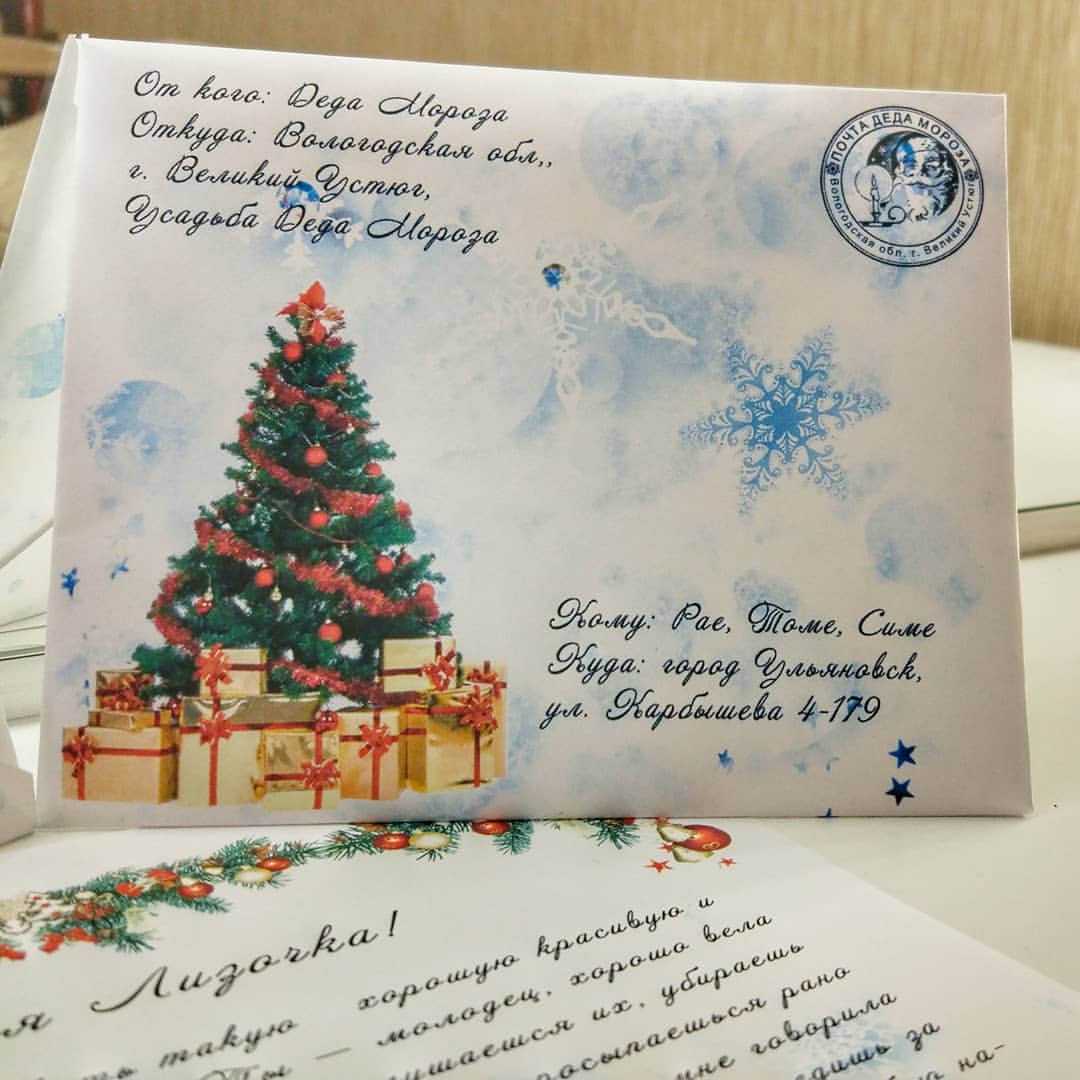 От кого: Деда Мороза
Откуда: Вологодская обл,,
г. Великий Устюг,
Усадьба Деда Мороза
ПОЧТА ДЕДА МОРОЗА
Вологодская обл. г. Великий Устюг
Кому: Рае, Томе, Симе
Куда: город Ульяновск,
ул. Карбышева 4-179
Лизочка!
такую хорошую красивую и
Ты — молодец, хорошо вела
их, убираешь
просыпаешься рано
мне говорила
за
на-